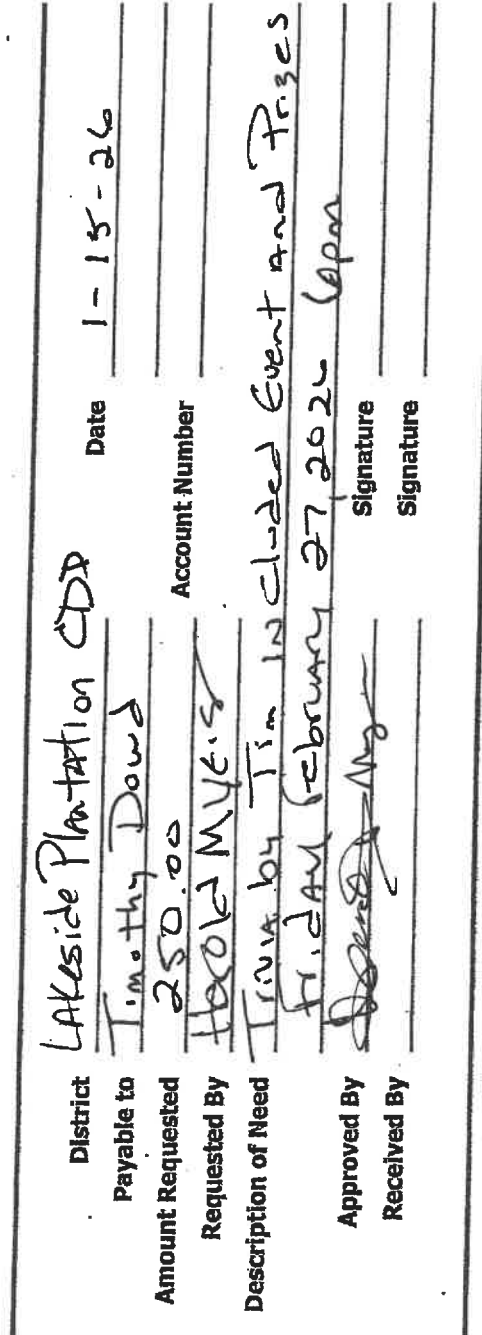 District LAKeside PlantAtion CDD Date 1-15-26
Payable to Timothy Dowd
Amount Requested 250.00 Account Number
Requested By Harold Myers
Description of Need Trivia by Tim INcluded Event And Prizes
FridAy February 27, 2026 6pm
Approved By Signature
Received By Signature